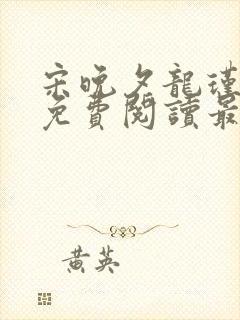 宋晚夕龍瑾
免費閱讀最
黃英